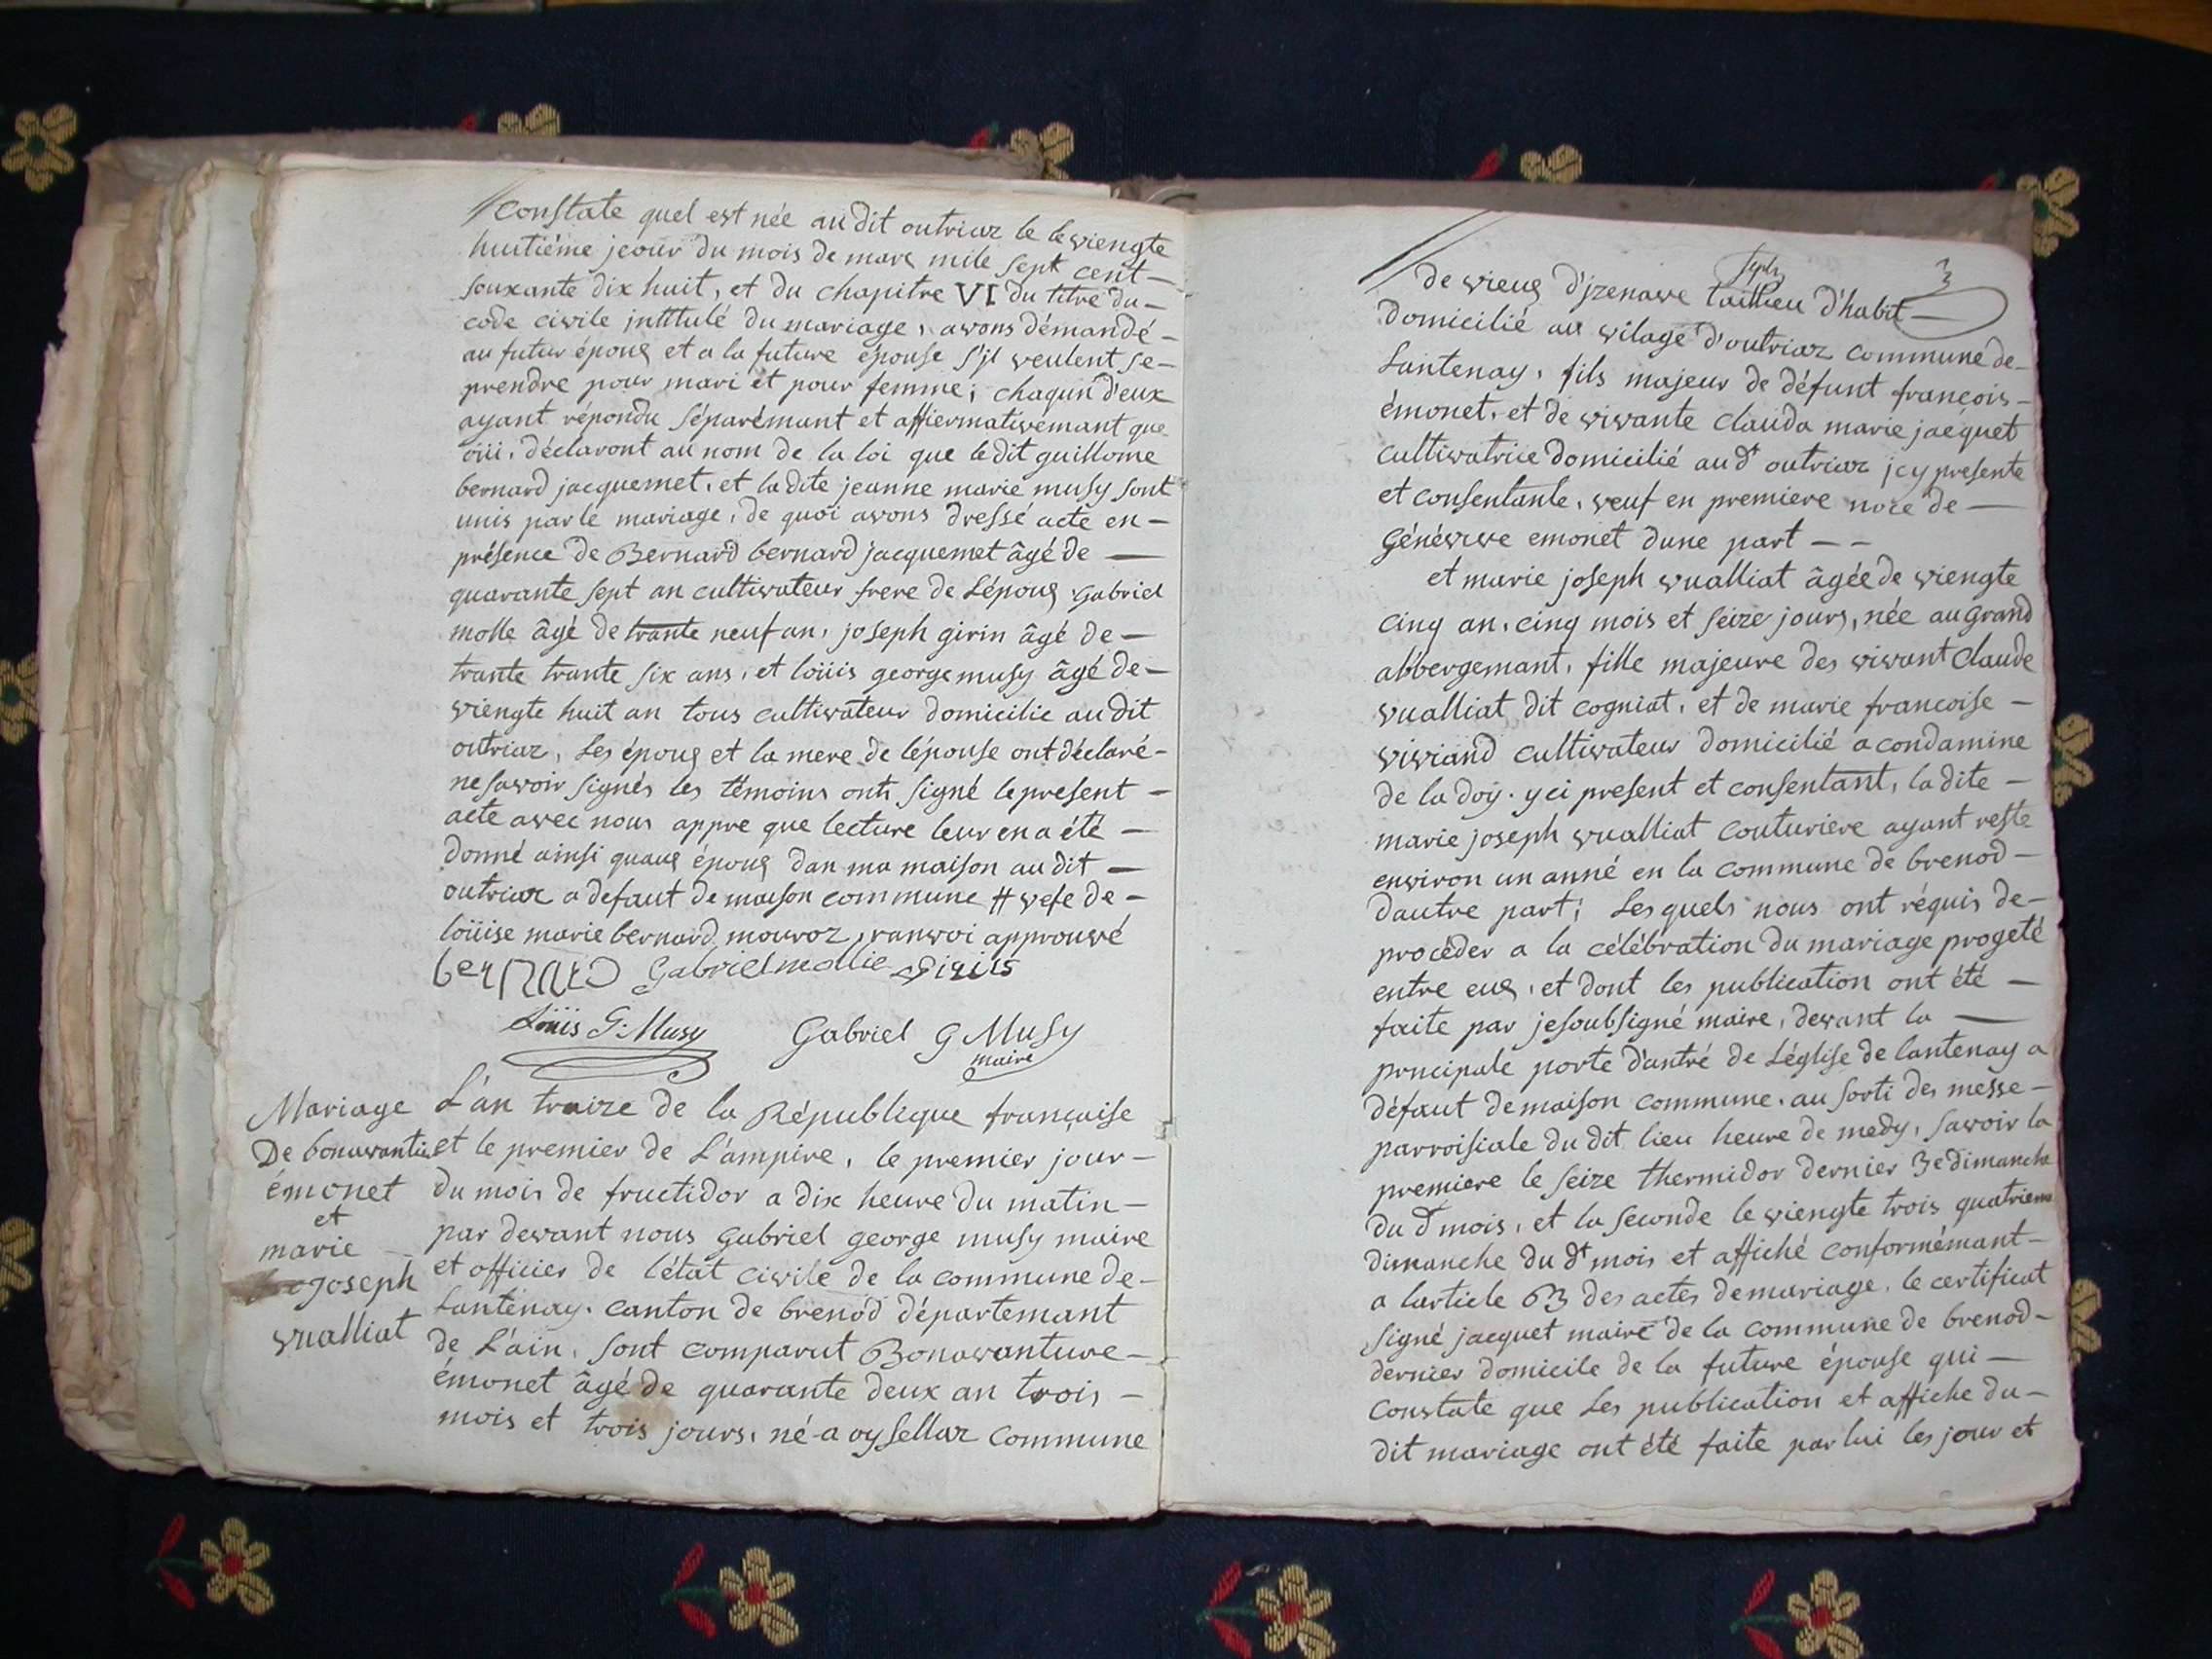 constate quel est née au dit outriaz le le viengte
huitiéme jeour du mois de mars mile sept cent
souxante dix huit, et du chapitre VI du titre du
code civile intitulé du mariage, avons démandé
au futur époux et a la future épouse s'jl veulent se
prendre pour mari et pour femme; chaqun d'eux
ayant répondu séparémant et affiermativemant que
oüi, déclaront au nom de la loi que le dit guillome
bernard jacquemet, et la dite jeanne marie musy sont
unis par le mariage, de quoi avons dressé acte en
présence de Bernard bernard jacquemet âgé de
quarante sept an cultivateur frere de Lépoux Gabriel
molle âgé de trante neuf an, joseph girin âgé de
trante trante six ans, et loüis george musy âgé de
viengte huit an tous cultivateur domicilie au dit
outriaz, Les époux et la mere de lépouse ont déclaré
ne savoir signés les témoins ont signé le present
acte avec nous appre que lecture leur en a été
donné ainsi quaux époux dan ma maison au dit
outriaz a defaut de maison commune # vefe de
loüise marie bernard mouroz, ranvoi approuvé
bernard Gabriel mollie girin
Loüis G. Musy Gabriel G Musy
maire
Mariage
De bonavantur
émonet
et
marie
Joseph
vualliat
L'an traize de la République française
et le premier de L'ampire, le premier jour
du mois de fructidor a dix heure du matin
par devant nous Gabriel george musy maire
et officier de létat civile de la commune de
Lantenay, canton de brenod départemant
de L'ain, sont comparut Bonavanture
émonet âgé de quarante deux an trois
mois et trois jours, né a oysellaz commune
3
de vieux d'jzenave tailleu d'habit
domicilié au vilage d'outriaz commune de
Lantenay, fils majeur de défunt françois
émonet, et de vivante clauda marie jacquet
cultivatrice domicilié au dt outriaz jcy presente
et consentante, veuf en premiere noce de
Génévive emonet dune part
et marie joseph vualliat âgée de viengte
cinq an, cinq mois et seize jours, née au grand
abbergemant, fille majeure des vivant Claude
vualliat dit cogniat, et de marie francoise
viviand cultivateur domicilié a condamine
de la doy. yci present et consentant, la dite
marie joseph vualliat couturiere ayant reste
environ un anné en la commune de brenod
dautre part; Les quels nous ont réquis de
procéder a la célébration du mariage progeté
entre eux, et dont les publication ont été
faite par je soubsigné maire, devant la
principale porte d'antré de Léglise de lantenay a
défaut de maison commune, au sorti des messe
parroisiale du dit lieu heure de medy, savoir la
premiere le seize thermidor dernier 3e dimanche
du dt mois, et la seconde le viengte trois quatrieme
dimanche du dt mois et affiché conformémant
a larticle 63 des actes de mariage, le certificat
signé jacquet maire de la commune de brenod
dernier domicile de la future épouse qui
constate que Les publication et affiche du
dit mariage ont été faite par lui les jour et